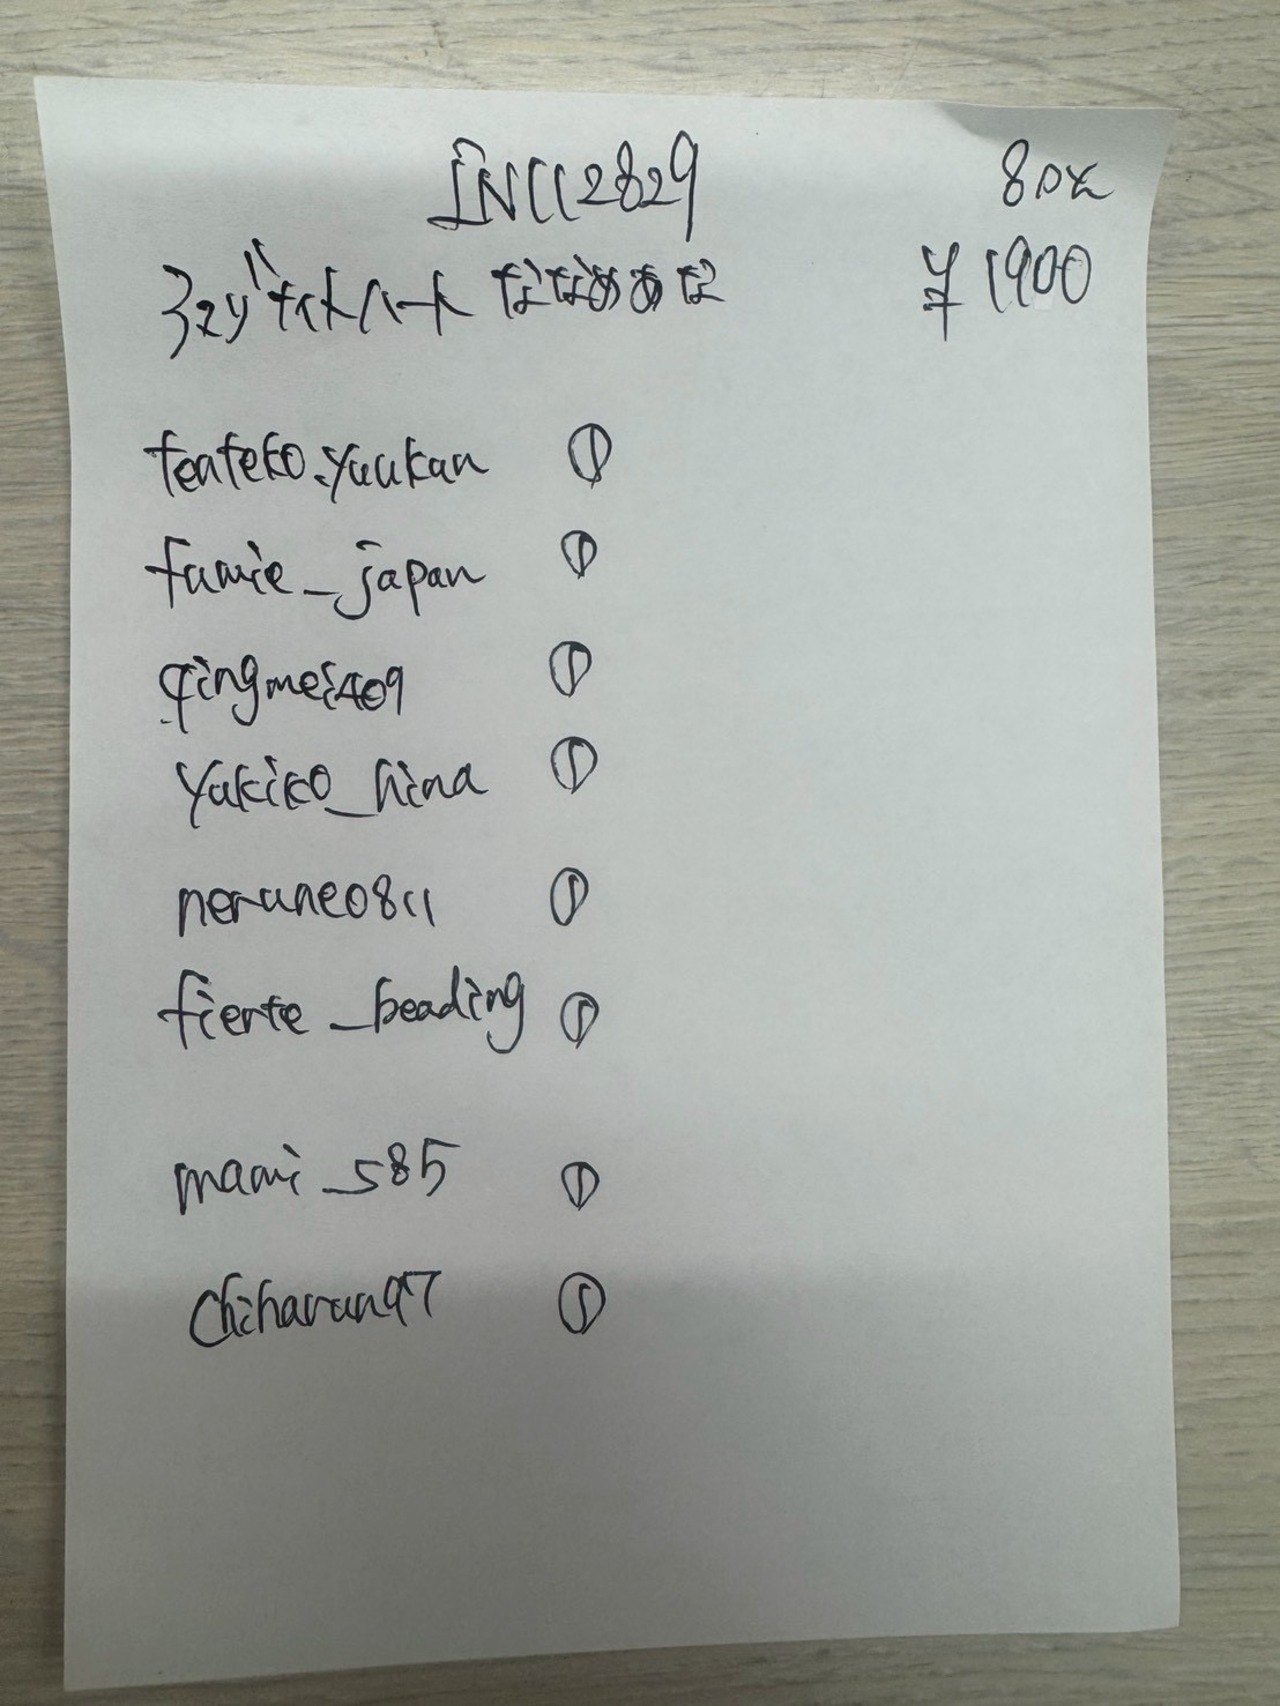 INC12829 80x
ラブラドライトハート ななめあな ¥1900
tenteko.yuukan ①
fumie_japan ①
qingmei409 ①
yukiko_hina ①
nerune0811 ①
fierte_beading ①
mami_s85 ①
chiharun97 ①